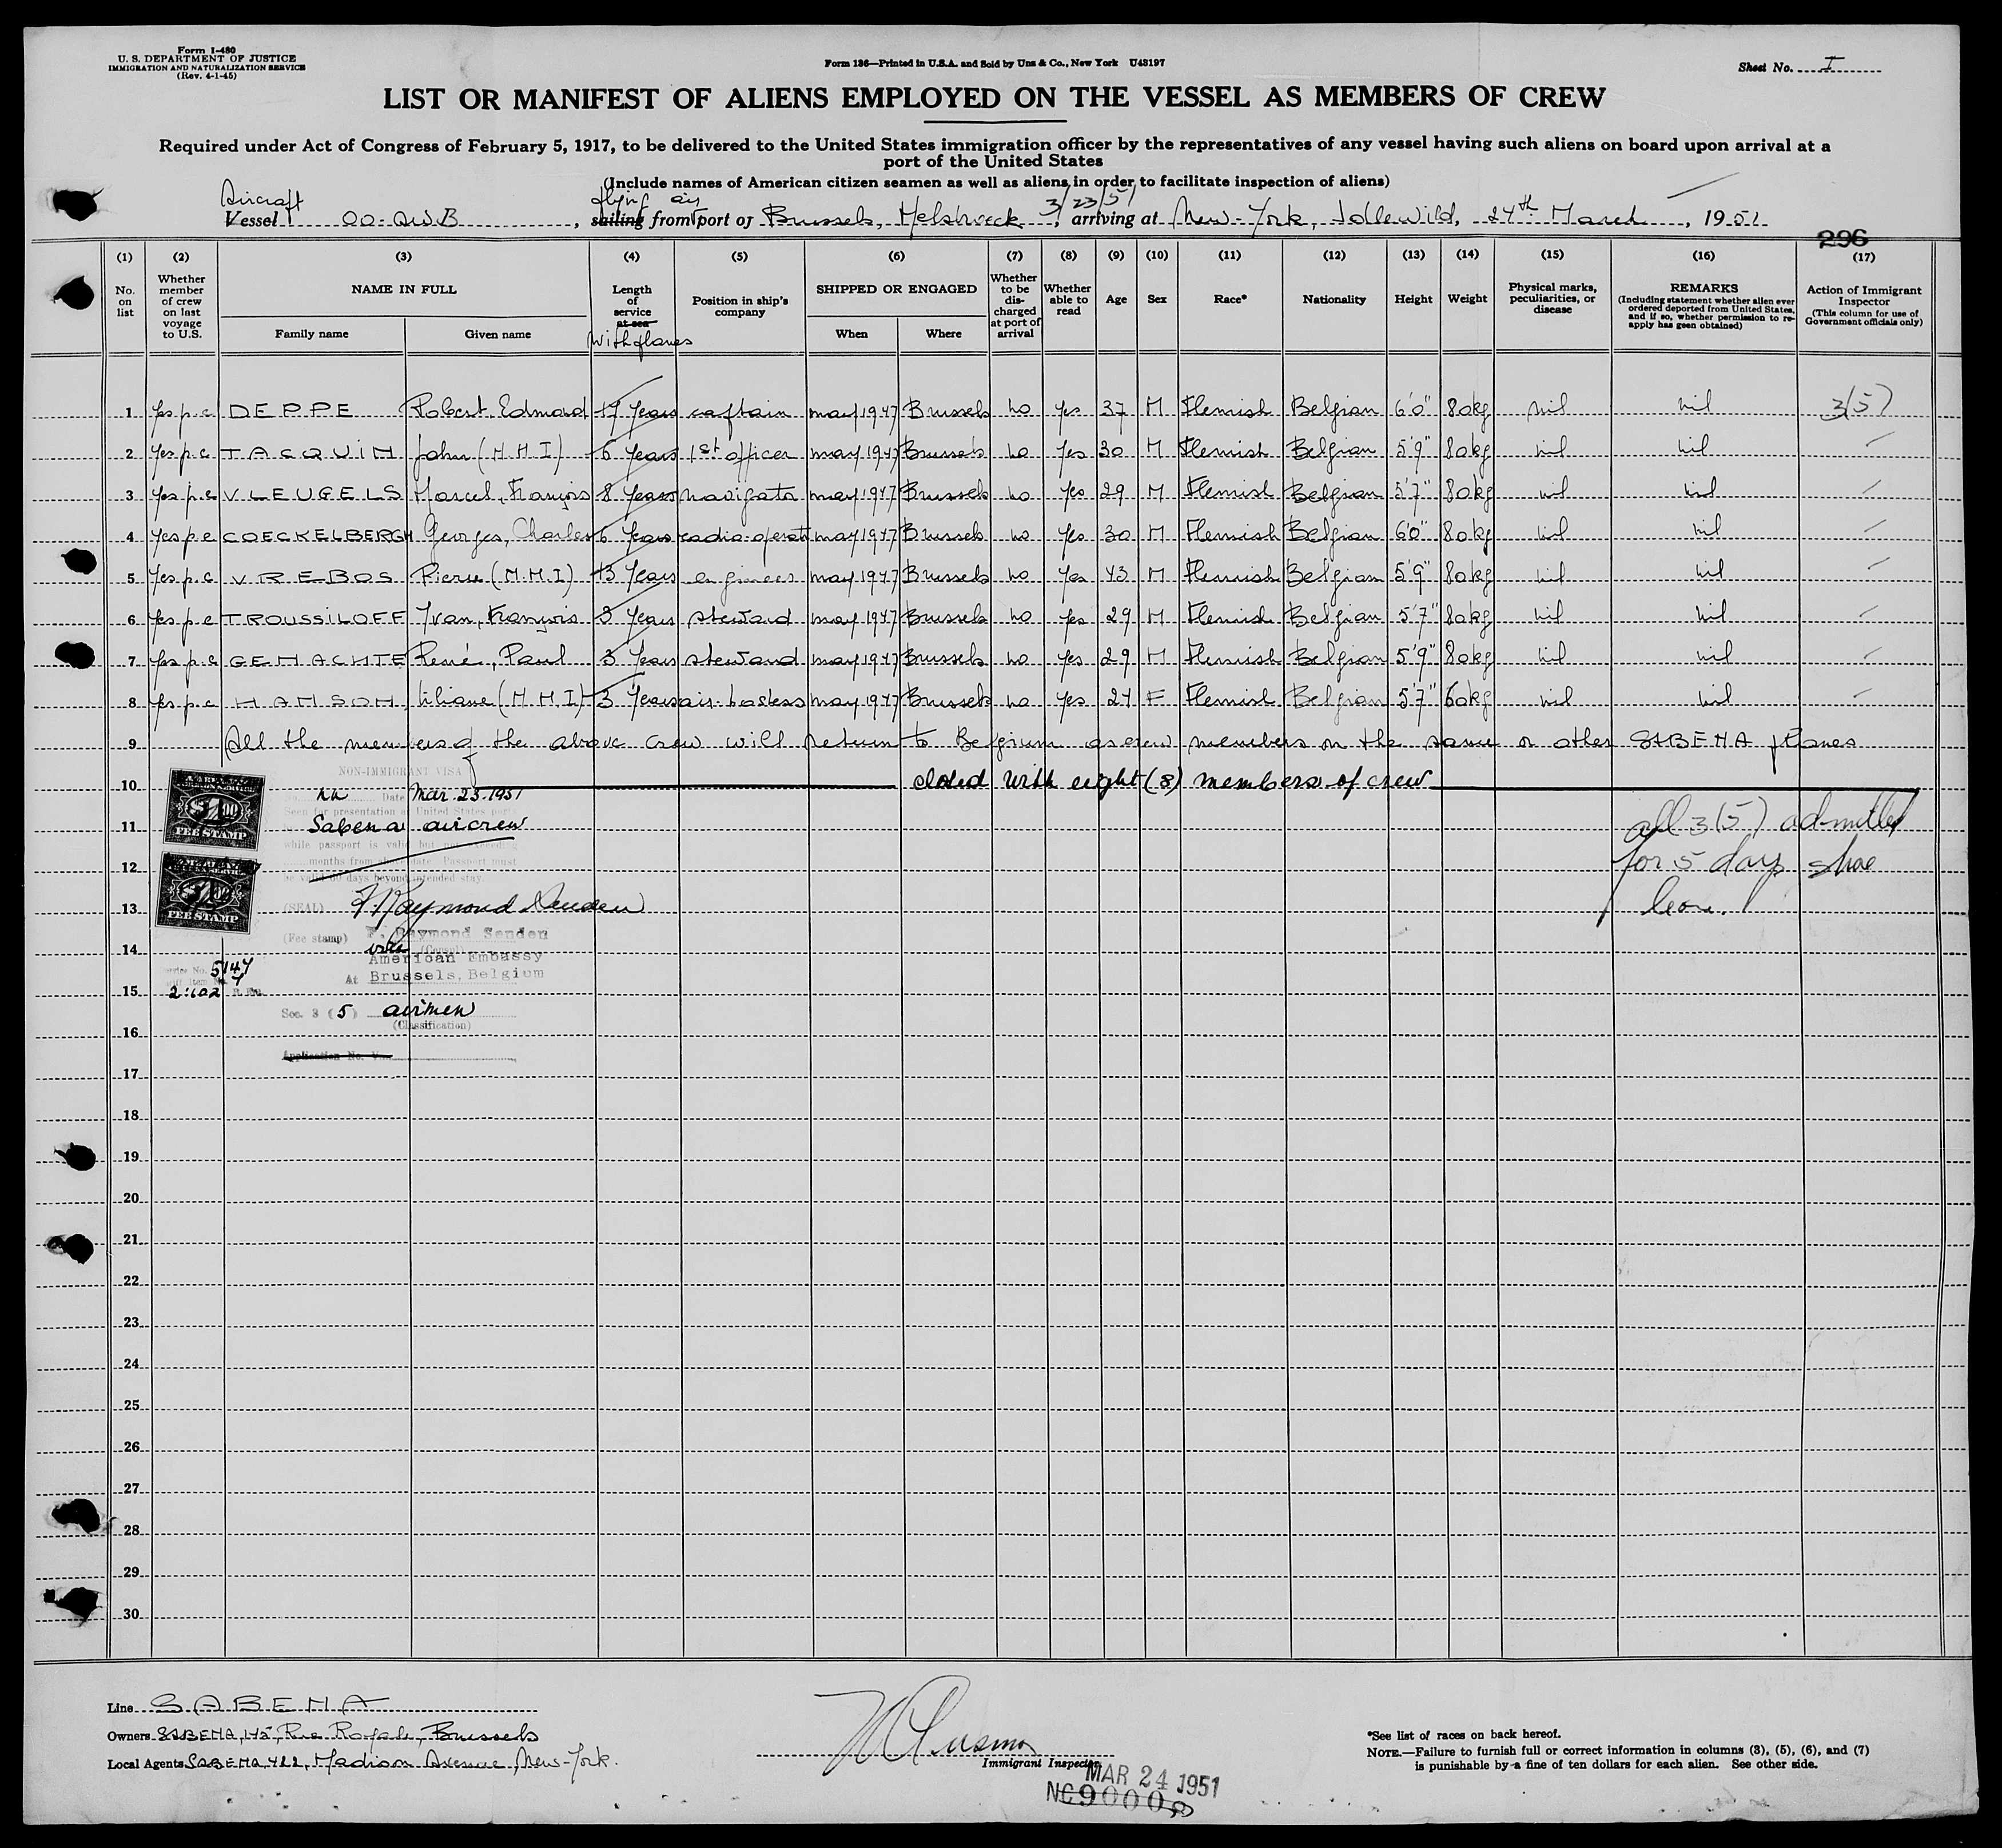 Form I-480
U. S. DEPARTMENT OF JUSTICE
IMMIGRATION AND NATURALIZATION SERVICE
(Rev. 4-1-45)
Form 136—Printed in U.S.A. and Sold by Unz & Co., New York U43197
Sheet No. I
LIST OR MANIFEST OF ALIENS EMPLOYED ON THE VESSEL AS MEMBERS OF CREW
Required under Act of Congress of February 5, 1917, to be delivered to the United States immigration officer by the representatives of any vessel having such aliens on board upon arrival at a
port of the United States
(Include names of American citizen seamen as well as aliens, in order to facilitate inspection of aliens)
Aircraft flying air 3/23/51
Vessel OO-AWB, sailing from port of Brussels, Melsbroeck, arriving at New-York, Idlewild, 24th March, 1951
296
(1) (2) (3) (4) (5) (6) (7) (8) (9) (10) (11) (12) (13) (14) (15) (16) (17)
No. on list
Whether member of crew on last voyage to U.S.
NAME IN FULL
Family name Given name
Length of service at sea
with planes
Position in ship's company
SHIPPED OR ENGAGED
When Where
Whether to be discharged at port of arrival
Whether able to read
Age
Sex
Race*
Nationality
Height
Weight
Physical marks, peculiarities, or disease
REMARKS
(Including statement whether alien ever ordered deported from United States, and if so, whether permission to re-apply has been obtained)
Action of Immigrant Inspector
(This column for use of Government officials only)
1 Yes p.c DEPPE Robert, Edmond 17 Years captain may 1947 Brussels no yes 37 M Flemish Belgian 6'0" 80kg nil nil 3(5)
2 Yes p.c TACQUIN John (N.M.I) 6 Years 1st officer may 1947 Brussels no yes 30 M Flemish Belgian 5'9" 80kg nil nil
3 Yes p.c VLEUGELS Marcel, François 8 Years navigator may 1947 Brussels no yes 29 M Flemish Belgian 5'7" 80kg nil nil
4 Yes p.c COECKELBERGH Georges, Charles 6 Years radio-operat may 1947 Brussels no yes 30 M Flemish Belgian 6'0" 80kg nil nil
5 Yes p.c VREBOS Pierre (N.M.I) 13 Years engineer may 1947 Brussels no yes 43 M Flemish Belgian 5'9" 80kg nil nil
6 Yes p.c TROUSSILOFF Yvan, François 3 Years steward may 1947 Brussels no yes 29 M Flemish Belgian 5'7" 80kg nil nil
7 Yes p.c GEMACHTE René, Paul 3 Years steward may 1947 Brussels no yes 29 M Flemish Belgian 5'9" 80kg nil nil
8 Yes p.c HANSON Liliane (N.M.I) 3 Years air-hostess may 1947 Brussels no yes 24 F Flemish Belgian 5'7" 60kg nil nil
9 All the members of the above crew will return to Belgium as crew members on the same or other SABENA planes
NON-IMMIGRANT VISA
10 closed with eight (8) members of crew
Date Mar. 23. 1951
Seen for presentation United States
11 Sabena aircrew
while passport is valid but not exceeding
12 months from above date. Passport must
be valid 60 days beyond intended stay.
all 3(5) admitted
for 5 days shore
leave.
$1.00
FEE STAMP
$1.00
FEE STAMP
13 (SEAL)
(Fee stamp) F. Raymond Senden
14 vice (Consul)
American Embassy
At Brussels, Belgium
Service No. 5147
15
Sec. 3 (5) airmen
(Classification)
16
Application No. V
17
18
19
20
21
22
23
24
25
26
27
28
29
30
Line SABENA
Owners SABENA, 145, Rue Royale, Brussels
Local Agents SABENA 422, Madison Avenue, New-York.
Immigrant Inspector
MAR 24 1951
*See list of races on back hereof.
NOTE.—Failure to furnish full or correct information in columns (3), (5), (6), and (7)
is punishable by a fine of ten dollars for each alien. See other side.